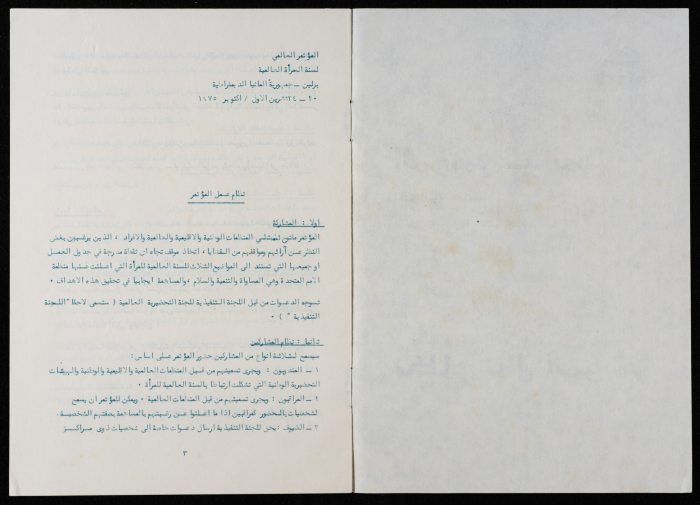 المؤتمر العالمي
لسنة المرأة العالمية
برلين – جمهورية المانيا الديمقراطية
٢٠ – ٢٤ تشرين الاول / اكتوبر ١٩٧٥
نظام عمل المؤتمر
اولا : المشاركة
المؤتمر مفتوح لممثلي المنظمات الوطنية والاقليمية والعالمية والافراد ، الذين يرغبون بغض
النظر عن آرائهم ومواقفهم من القضايا ، اتخاذ موقف تجاه اي نقاط مدرجة في جدول العمل
او جميعها التي تستند الى المواضيع الثلاث للسنة العالمية للمرأة التي اعلنت عنها منظمة
الامم المتحدة وهي المساواة والتنمية والسلام ، والمساهمة ايجابيا في تحقيق هذه الاهداف .
توجه الدعوات من قبل اللجنة التنفيذية للجنة التحضيرية العالمية ( ستسمى لاحقا "اللجنة
التنفيذية " ) .
ثانيا : نظام المشاركين
سيسمح لثلاثة انواع من المشاركين حضور المؤتمر على اساس :
١ – المندوبون : ويجرى تسميتهم من قبل المنظمات العالمية والاقليمية والوطنية والهيئات
التحضيرية الوطنية التي تشكلت ارتباطا بالسنة العالمية للمرأة .
٢ – المراقبون : ويجرى تسميتهم من قبل المنظمات العالمية . ويمكن للمؤتمر ان يسمح
لشخصيات بالحضور كمراقبين اذا ما اعلنوا عن رغبتهم بالمساهمة بصفتهم الشخصية .
٣ – الضيوف : يحق للجنة التنفيذية ارسال دعوات خاصة الى شخصيات ذوى مراكز
٣